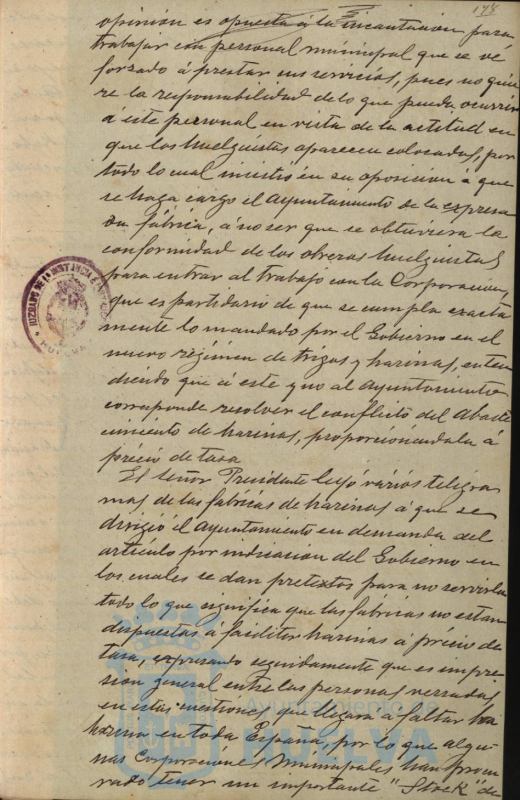 178
opinión es opuesta á la incautación para
trabajar con personal municipal que se vé
forzado á prestar sus servicios, pues no quie
re la responsabilidad de lo que pueda ocurrir
á este personal en vista de la actitud en
que los huelguistas aparecen colocados, por
todo lo cual insistió en su oposición á que
se haga cargo el Ayuntamiento de la expresa
da fábrica, á no ser que se obtuviera la
conformidad de los obreros huelguistas
para entrar al trabajo con la Corporación,
que es partidario de que se cumpla exacta
mente lo mandado por el Gobierno en el
nuevo régimen de trigos y harinas, enten
diendo que á este y no al Ayuntamiento
corresponde resolver el conflicto del abaste
cimiento de harinas, proporciónandola á
précio de tasa
El señor Presidente leyó vários telegra
mas de las fabricas de harinas á que se
dirigió el Ayuntamiento en demanda del
artículo por indicacion del Gobierno en
los cuales se dan pretextos para no servirla
todo lo que significa que las fábricas no estan
dispuestas á facilitar harinas á précio de
tasa, expresando seguidamente que es impre
sion general entre las personas versadas
en estas cuestiones que llegará á faltar la
harina en toda España, por lo que algu
nas Corporaciónes Municipales han procu
rado tener un importante "Stock" de
JUZGADO DE 1ª INSTANCIA E
HUELVA
Ayuntamiento de
HUELVA